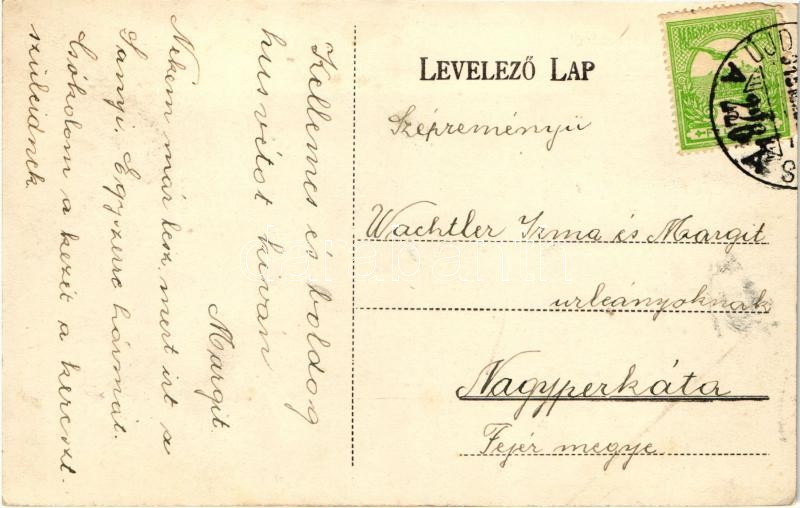 Kellemes és boldog
husvétot kiván
Margit.
Nekem már lesz, mert irt a
Sanyi. Egyszerre hármat.
Csókolom a kezét a kereszt.
szüleidnek
LEVELEZŐ LAP
MAGYAR KIR. POSTA
Szépreményü
Wachtler Irma és Margit
urleányoknak
Nagyperkáta
Fejér megye